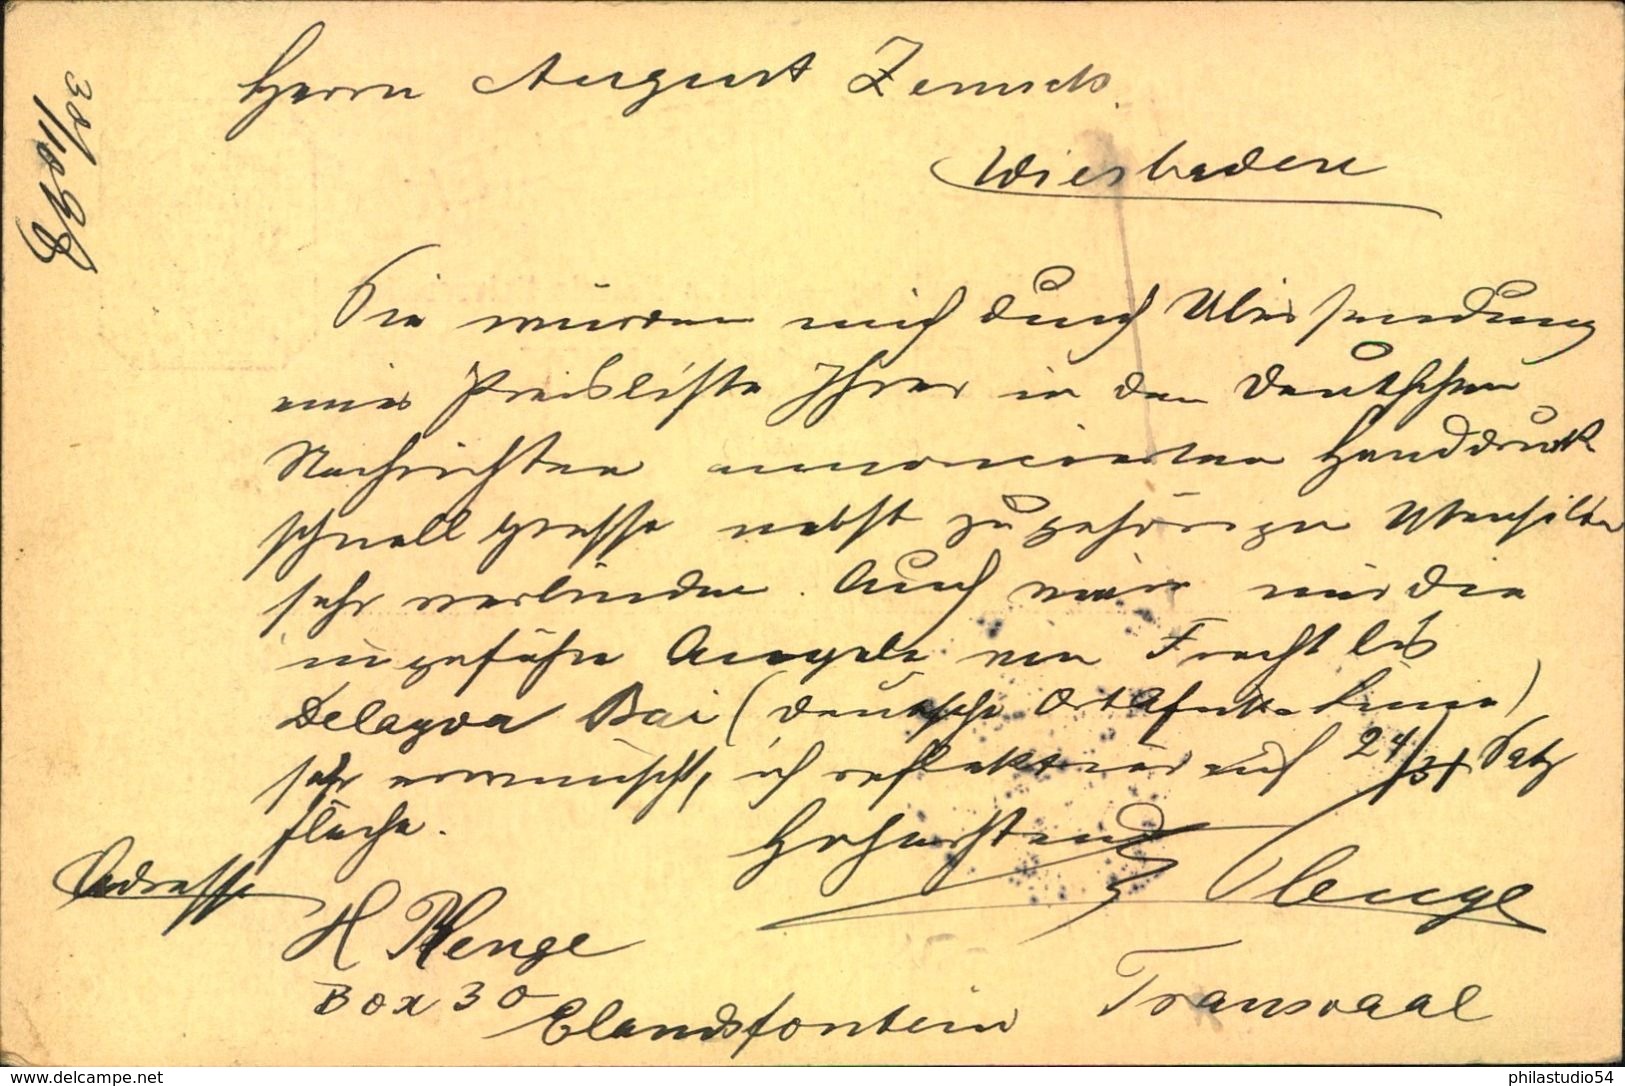 Herrn August Zemsch
Wiesbaden
Sie würden mich durch Übersendung
einer Preisliste Ihrer in den Deutschen
Nachrichten annoncierten Handdruck
schnell presse nebst zugehörigen Utensilien
sehr verbinden. Auch wäre mir die
ungefähre Angabe von Fracht bis
Delagoa Bai (deutsche Ostafrika Linie)
sehr erwünscht, ich reflektiere auf 24/34 Satz
fläche.
Hochachtend
Adresse
H Plenge
Box 30
Elandsfontein Transvaal
www.delcampe.net
philastudio54